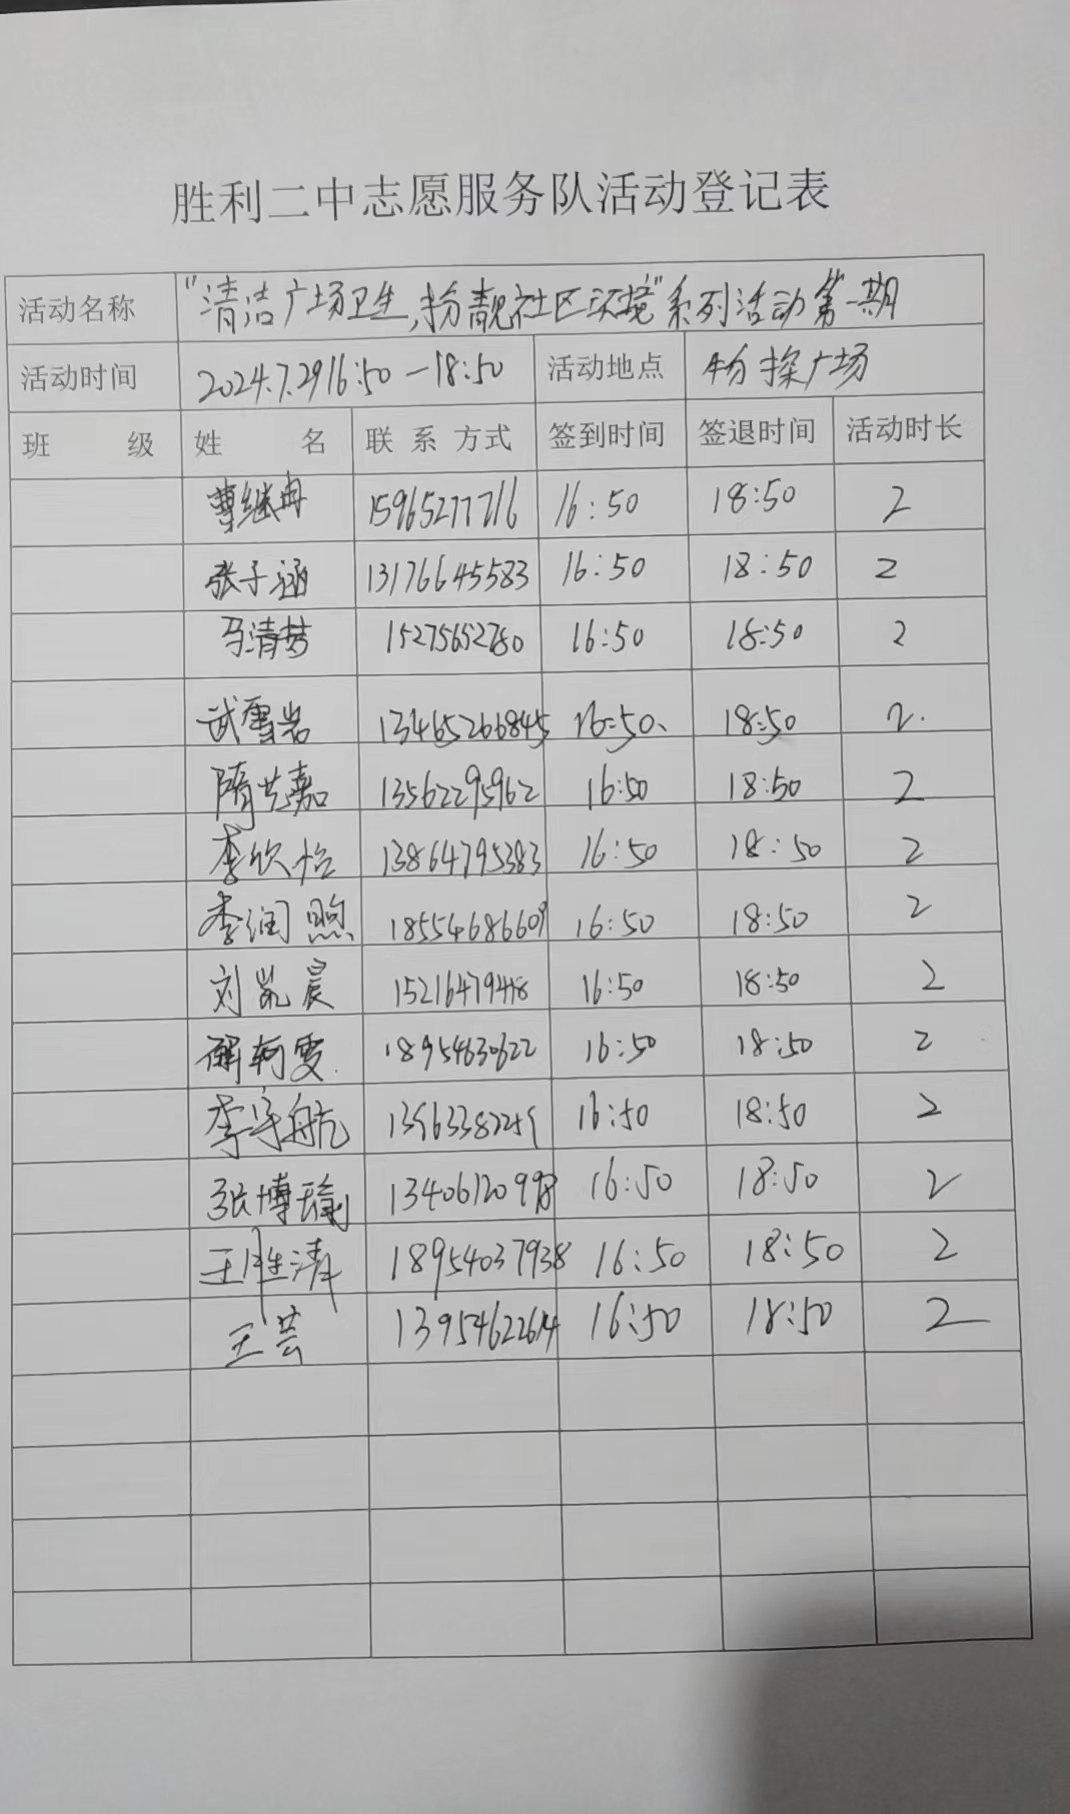 胜利二中志愿服务队活动登记表
活动名称 "清洁广场卫生,扮靓社区环境"系列活动第一期
活动时间 2024.7.29 16:50-18:50 活动地点 广场
班 级 姓 名 联 系 方式 签到时间 签退时间 活动时长
曹继冉 15965277716 16:50 18:50 2
张子涵 13176645583 16:50 18:50 2
马清梦 15275652780 16:50 18:50 2
武雪岩 13465266845 16:50、 18:50 2.
隋艺嘉 13562295962 16:50 18:50 2
李钦怡 13864795383 16:50 18:50 2
李润煦 18554686609 16:50 18:50 2
刘凯晨 16:50 18:50 2
解轲雯 18954630622 16:50 18:50 2
李宇航 16:50 18:50 2
张博瑜 16:50 18:50 2
王胜清 18954037938 16:50 18:50 2
王芸 13954622614 16:50 18:50 2